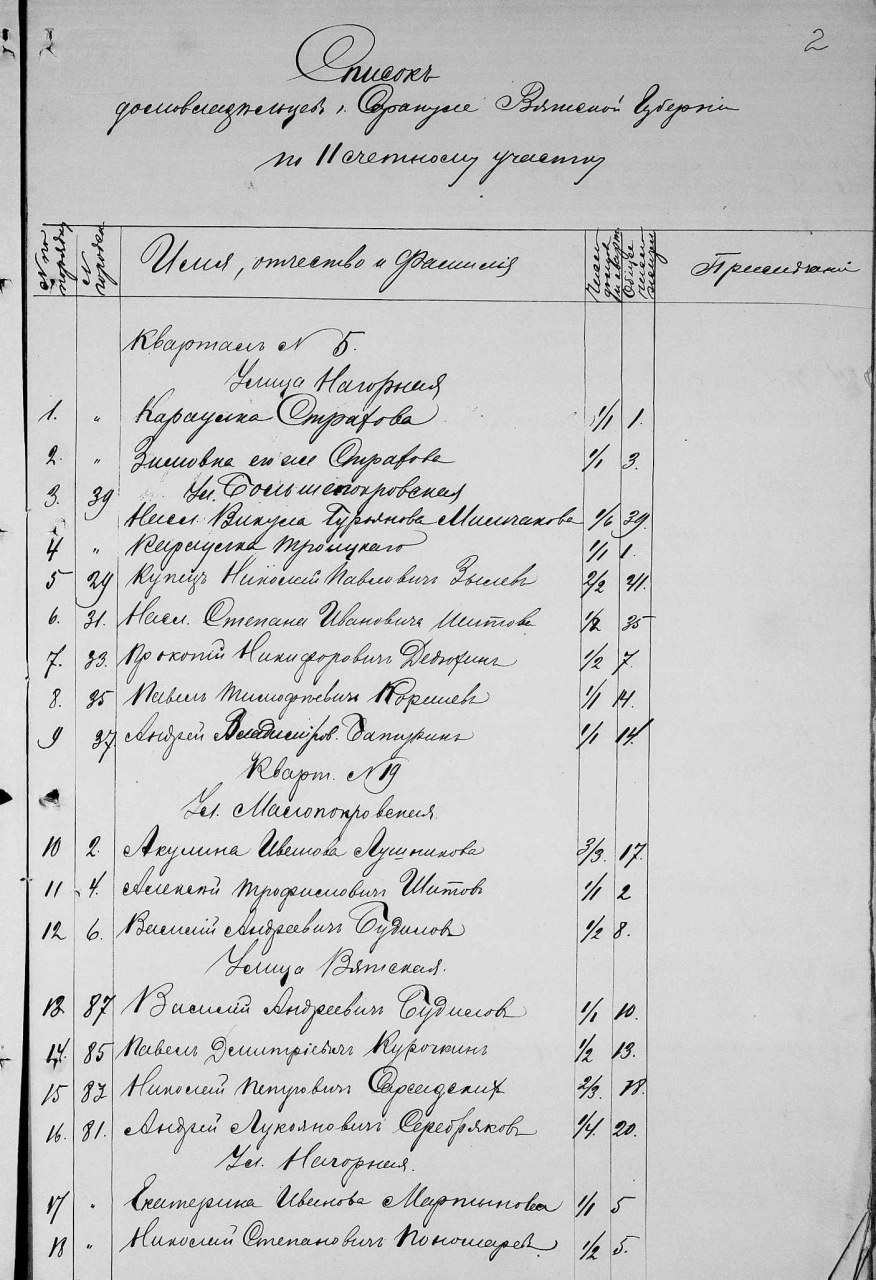 2
Списокъ
домовладѣльцевъ г. Сарапула Вятской Губерніи
по 11 счетному участку
№ по порядку
№ городск
Имя, отчество и Фамилія
Число домовъ и кварт.
Общее число жильц
Примѣчаніе
Кварталъ № 5.
Улица Нагорная
1. " Караулка Страхова 1/1 1.
2. " Зимовка его же Страхова 1/1 3.
Ул. Большепокровская
3. 39 Насл. Викула Гурьянова Мылчакова 1/6 39.
4 " Караулка Троицкаго 1/1 1.
5 29 Купецъ Николай Павловичъ Зылевъ 2/2 21.
6. 31. Насл. Степана Ивановича Шитова 1/2 35
7. 33. Прокопій Никифоровичъ Дедюхинъ 1/2 7.
8. 35 Павелъ Тимофѣевичъ 1/1 14.
9 37 Андрей Владиміров. Батуринъ 1/1 14.
Кварт. № 19
Ул. Малопокровская.
10 2. Акулина Иванова Лушникова 3/3. 17.
11 4. Алексѣй Трофимовичъ Шитовъ 1/1 2
12 6. Василій Андреевичъ Будиловъ 1/2 8.
Улица Вятская.
13 87 Василій Андреевичъ Будиловъ 1/1 10.
14. 85 Павелъ Дмитріевичъ Курочкинъ 1/2 13.
15 83 Николай Петровичъ 2/3. 18.
16. 81. Андрей Лукояновичъ Серебряковъ 1/4. 20.
Ул. Нагорная.
17 " Екатерина Иванова Мартынова 1/1 5
18 " Николай Степановичъ Пономаревъ 1/2 5.